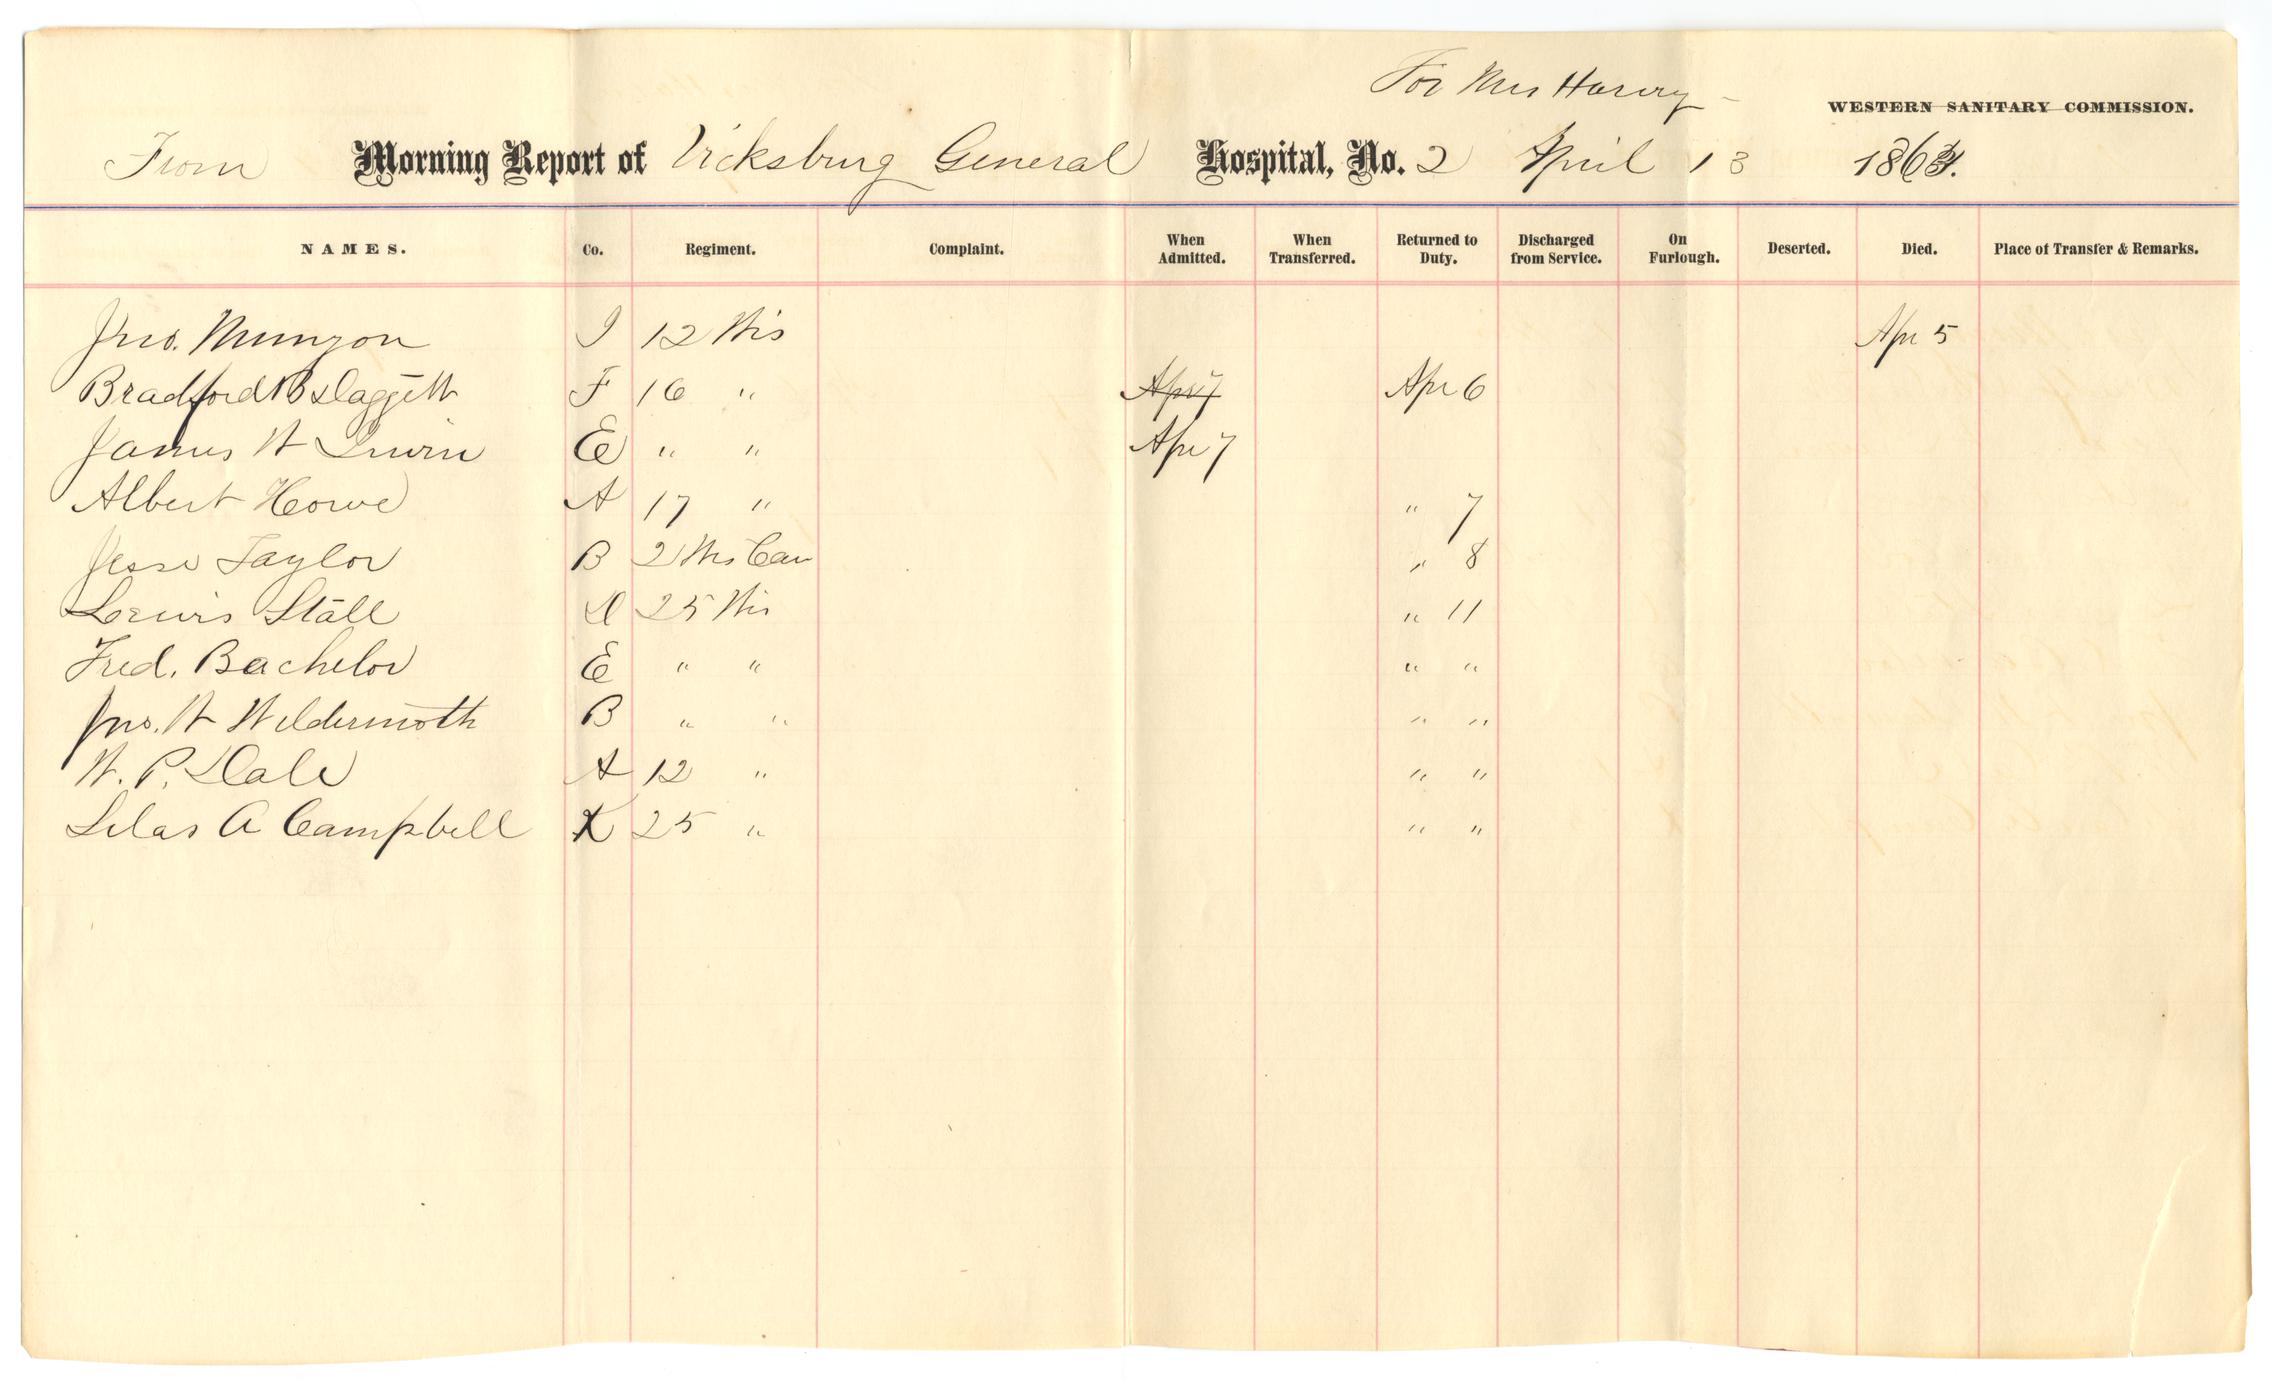 For Mrs Harvey
WESTERN SANITARY COMMISSION.
From Morning Report of Vicksburg General Hospital, No. 2 April 13 1864.
NAMES. Co. Regiment. Complaint. When Admitted. When Transferred. Returned to Duty. Discharged from Service. On Furlough. Deserted. Died. Place of Transfer & Remarks.
Jno. Munzon I 12 Wis Apr 5
Bradford B Daggett F 16 " Apr 7 Apr 6
James W Irwin E " " Apr 7
Albert Howe A 17 " " 7
Jesse Taylor B 2 Wis Cav " 8
Lewis Stall D 25 Wis " 11
Fred. Bachelor E " " " "
Jno. W Wildermoth B " " " "
W. P. Dale A 12 " " "
Silas A Campbell K 25 " " "